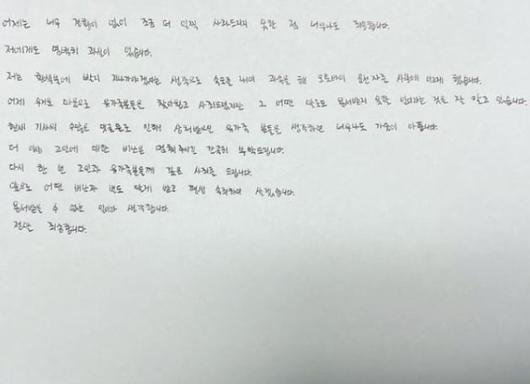 어제는 너무 경황이 없어 조금 더 일찍 사과드리지 못한 점 너무나도 죄송합니다.
저에게도 명백히 과실이 있습니다.
저는 황색불에 빨리 지나가야겠다는 생각으로 속도를 내며 과속을 해 오토바이 운전자를 사망에 이르게 했습니다.
어제 유가족분들을 찾아뵙고 사죄드렸지만 그 어떤 말로도 용서받지 못할 것을 잘 알고 있습니다.
현재 기사의 수많은 댓글들로 인해 상처받으실 유가족 분들을 생각하면 너무나도 가슴이 아픕니다.
더 이상 고인에 대한 비난은 멈춰주시길 간곡히 부탁드립니다.
다시 한 번 고인과 유가족분들께 깊은 사죄를 드립니다.
앞으로 어떤 비난과 벌도 달게 받고 평생 속죄하며 살겠습니다.
용서받을 수 없는 일이라 생각합니다.
정말 죄송합니다.